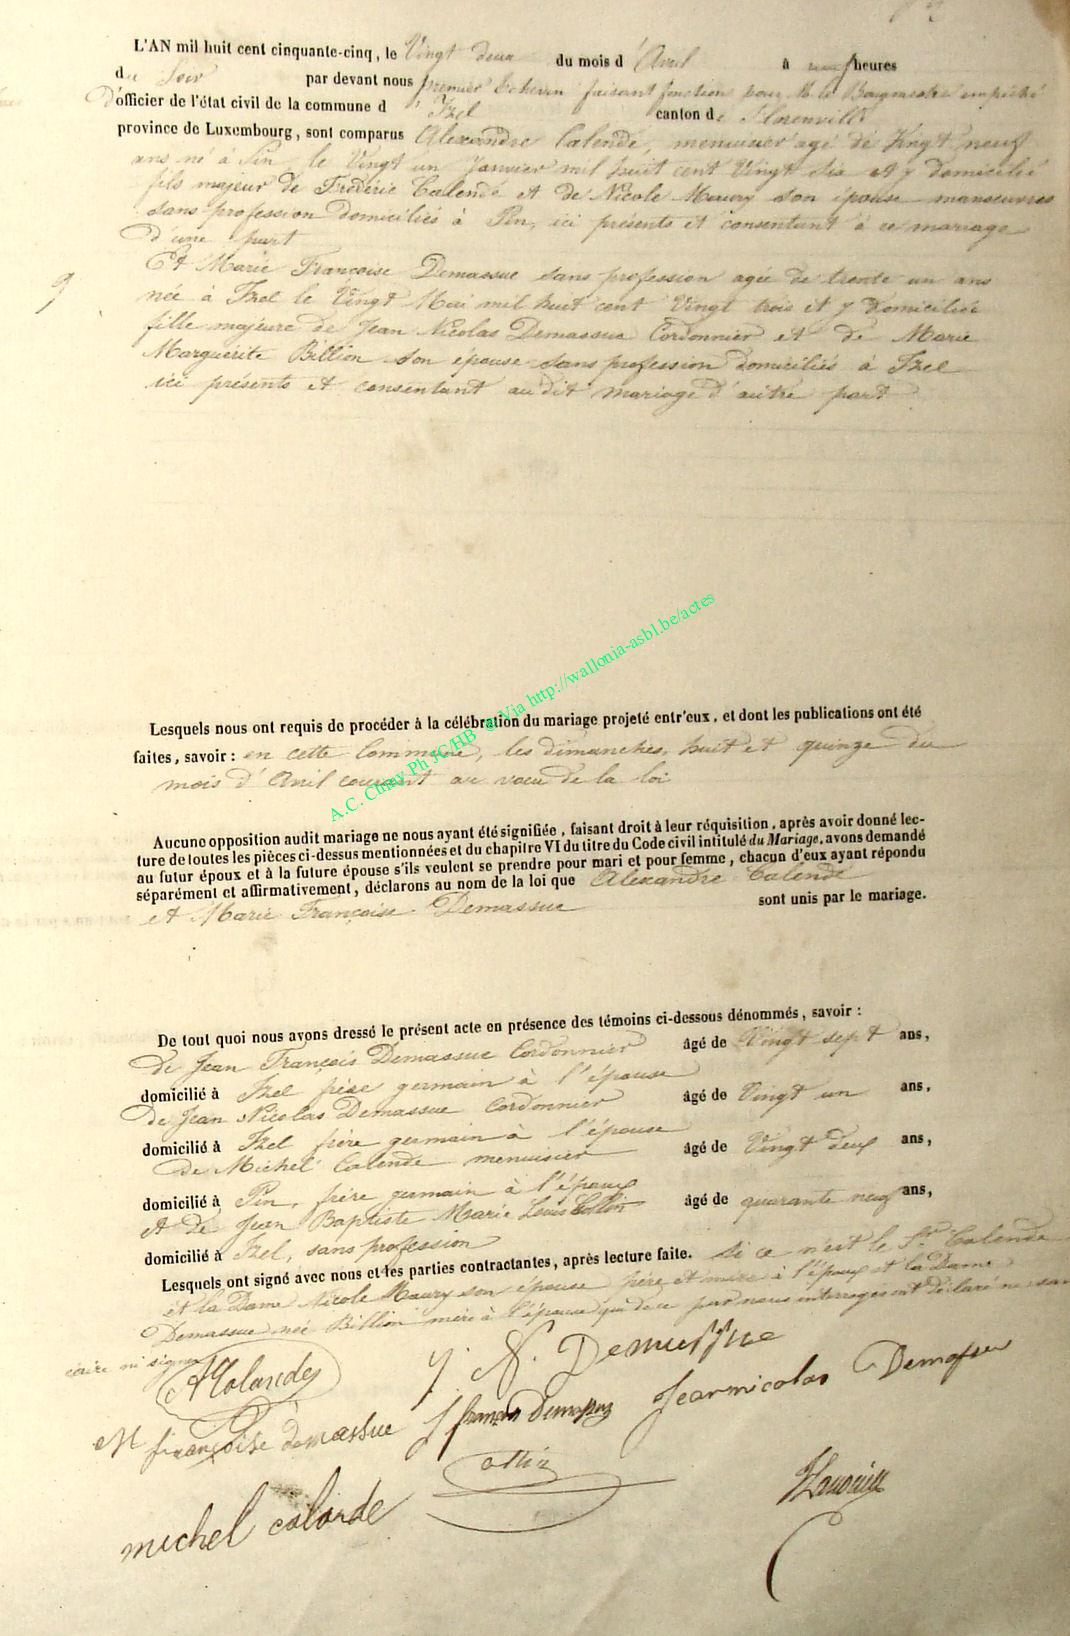 L'AN mil huit cent cinquante-cinq, le Vingt deux du mois d'Avril à neuf heures
du Soir par devant nous premier Echevin faisant fonction pour M. le Bourgmestre empêché
d'officier de l'état civil de la commune d'Izel canton de Florenville
province de Luxembourg, sont comparus Alexandre Calende, menuisier agé de Vingt neuf
ans né à Pin le Vingt un Janvier mil huit cent Vingt six et y domicilié
fils majeur de Frédéric Calende et de Nicole Maury son épouse manoeuvres
sans profession domiciliés à Pin, ici présents et consentant à ce mariage
d'une part
9
Et Marie Françoise Demassue sans profession agée de trente un ans
née à Izel le Vingt Mai mil huit cent Vingt trois et y domiciliée
fille majeure de Jean Nicolas Demassue Cordonnier et de Marie
Marguerite Billion son épouse sans profession domiciliés à Izel
ici présents et consentant au dit mariage d'autre part
Lesquels nous ont requis de procéder à la célébration du mariage projeté entr'eux, et dont les publications ont été
faites, savoir : en cette Commune, les dimanches huit et quinze du
mois d'Avril courant au voeu de la loi
A.C. Chiny Ph JC/HB © Via http://wallonia-asbl.be/actes
Aucune opposition audit mariage ne nous ayant été signifiée, faisant droit à leur réquisition, après avoir donné lec-
ture de toutes les pièces ci-dessus mentionnées et du chapitre VI du titre du Code civil intitulé du Mariage, avons demandé
au futur époux et à la future épouse s'ils veulent se prendre pour mari et pour femme, chacun d'eux ayant répondu
séparément et affirmativement, déclarons au nom de la loi que Alexandre Calende
et Marie Françoise Demassue sont unis par le mariage.
De tout quoi nous avons dressé le présent acte en présence des témoins ci-dessous dénommés, savoir :
de Jean François Demassue Cordonnier âgé de Vingt sept ans,
domicilié à Izel frère germain à l'épouse
de Jean Nicolas Demassue Cordonnier âgé de Vingt un ans,
domicilié à Izel frère germain à l'épouse
de Michel Calende menuisier âgé de Vingt deux ans,
domicilié à Pin, frère germain à l'époux
et de Jean Baptiste Marie Louis Collin âgé de quarante neuf ans,
domicilié à Izel, sans profession
Lesquels ont signé avec nous et les parties contractantes, après lecture faite. Si ce n'est le Sr Calende
et la Dame Nicole Maury son épouse père et mère à l'époux et la Dame
Demassue née Billion mère à l'épouse qui de ce par nous interrogés ont déclaré ne savoir
écrire ni signer
J. N. Demassue
M françoise demassue J françois Demassue Jeannicolas Demassue
Collin
michel calande